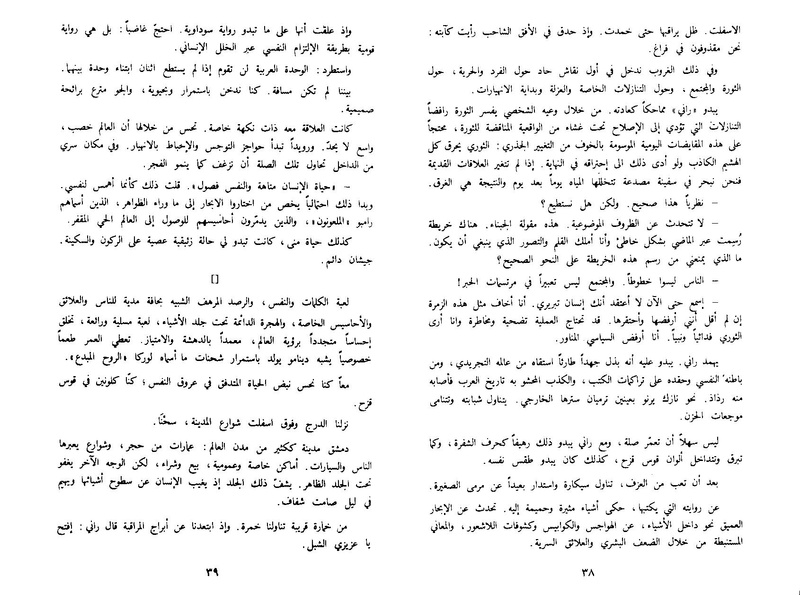 الاسفلت. ظل يراقبها حتى خمدت. وإذ حدق في الأفق الشاحب رأيت كآبته:
نحن مقذوفون في فراغ.
وفي ذلك الغروب ندخل في أول نقاش حاد حول الفرد والحرية، حول
الثورة والمجتمع، وحول التنازلات الخاصة والعزلة وبداية الانهيارات.
يبدو «راني» مماحكاً كعادته. من خلال وعيه الشخصي يفسر الثورة رافضاً
التنازلات التي تؤدي إلى الإصلاح تحت غشاء من الواقعية المناقضة للثورة، محتجاً
على هذه المقايضات اليومية الموسومة بالخوف من التغيير الجذري: الثوري يحرق كل
الهشيم الكاذب ولو أدى ذلك الى إحتراقه في النهاية. إذا لم تتغير العلاقات القديمة
فنحن نبحر في سفينة مصدعة تتخللها المياه يوماً بعد يوم والنتيجة هي الغرق.
– نظرياً هذا صحيح. ولكن هل نستطيع؟
– لا تتحدث عن الظروف الموضوعية. هذه مقولة الجبناء. هناك خريطة
رُسمت عبر الماضي بشكل خاطئ وأنا أملك القلم والتصور الذي ينبغي أن يكون.
ما الذي يمنعني من رسم هذه الخريطة على النحو الصحيح؟
– الناس ليسوا خطوطاً. والمجتمع ليس تعبيراً في مرتسمات الحبر!
– إسمع حتى الآن لا أعتقد أنك إنسان تبريري. أنا أخاف مثل هذه الزمرة
إن لم أقل أنني أرفضها وأحتقرها. قد تحتاج العملية تضحية ومخاطرة وانا أرى
الثوري فدائياً ونبياً. أنا أرفض السياسي المناور.
يهمد راني. يبدو عليه أنه بذل جهداً طارئاً استقاه من عالمه التجريدي، ومن
باطنه النفسي وحقده على تراكمات الكتب، والكذب المحشو به تاريخ العرب فأصابه
منه رذاذ. نحو نازك يرنو بعينين ترميان سترها الخارجي. يتناول شبابته وتتنامى
موجعات الحزن.
ليس سهلاً أن تعمّر صلة، ومع راني يبدو ذلك رهيفاً كحرف الشفرة، وكما
تبرق وتتداخل ألوان قوس قزح، كذلك كان يبدو طقس نفسه.
بعد أن تعب من العزف، تناول سيكارة واستدار بعيداً عن مرمى الصغيرة.
عن روايته التي يكتبها، حكى أشياء مثيرة وحميمة إليه. تحدث عن الإبحار
العميق نحو داخل الأشياء، عن الهواجس والكوابيس وكشوفات اللاشعور، والمعاني
المستنبطة من خلال الضعف البشري والعلائق السرية.
٣٨
وإذ علقت أنها على ما تبدو رواية سوداوية. احتجّ غاضباً: بل هي رواية
قومية بطريقة الإلتزام النفسي عبر الخلل الإنساني.
واستطرد: الوحدة العربية لن تقوم إذا لم يستطع اثنان ابتناء وحدة بينهما.
بيننا لم تكن مسافة. كنا ندخن باستمرار وبحيوية، والجو مترع برائحة
صميمية.
كانت العلاقة معه ذات نكهة خاصة. تحس من خلالها أن العالم خصب،
واسع لا يحدّ. ورويداً تبدأ حواجز التوجس والإحباط بالانهيار. وفي مكان سري
من الداخل تحاول تلك الصلة أن تزغف كما ينمو الفجر.
– «حياة الإنسان متاهة والنفس فصول». قلت ذلك كأنما أهمس لنفسي.
وبدا ذلك احتمالياً يخص من اختاروا الابحار إلى ما وراء الظواهر، الذين أسماهم
رامبو «الملعونون»، والذين يدمّرون أحاسيسهم للوصول إلى العالم الحي المقفر.
كذلك حياة منى، كانت تبدو لي حالة زئبقية عصية على الركون والسكينة.
جيشان دائم.
[]
لعبة الكلمات والنفس، والرصد المرهف الشبيه بحافة مدية للناس والعلائق
والأحاسيس الخاصة، والهجرة الدائمة تحت جلد الأشياء، لعبة مسلية ورائعة، تخلق
إحساساً متجدداً برؤية العالم، معمداً بالدهشة والامتياز. تعطي العمر طعماً
خصوصياً يشبه دينامو يولد باستمرار شحنات ما أسماه لوركا «الروح المبدع».
معاً كنا نحس نبض الحياة المتدفق في عروق النفس؛ كنّا كلونين في قوس
قزح.
نزلنا الدرج وفوق اسفلت شوارع المدينة، سحْنا.
دمشق مدينة ككثير من مدن العالم: عمارات من حجر، وشوارع يعبرها
الناس والسيارات. أماكن خاصة وعمومية، بيع وشراء، لكن الوجه الآخر يغفو
تحت الجلد الظاهر. يشفّ ذلك الجلد إذ يغيب الإنسان عن سطوح أشيائها ويهيم
في ليل صامت شفاف.
من خمارة قريبة تناولنا خمرة. وإذ ابتعدنا عن أبراج المراقبة قال راني: إفتح
يا عزيزي الشبل.
٣٩